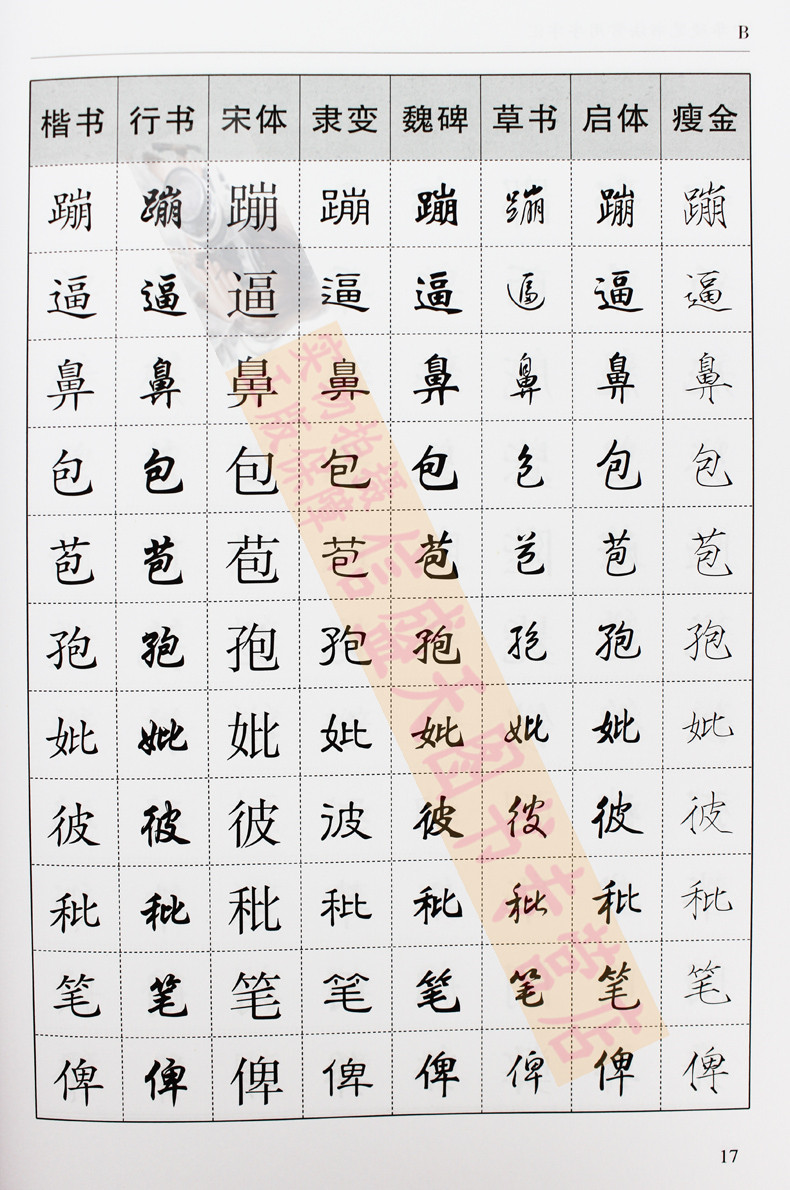 B
楷书 行书 宋体 隶变 魏碑 草书 启体 瘦金
蹦 蹦 蹦 蹦 蹦 蹦 蹦 蹦
逼 逼 逼 逼 逼 逼 逼 逼
鼻 鼻 鼻 鼻 鼻 鼻 鼻 鼻
包 包 包 包 包 包 包 包
苞 苞 苞 苞 苞 苞 苞 苞
孢 孢 孢 孢 孢 孢 孢 孢
妣 妣 妣 妣 妣 妣 妣 妣
彼 彼 彼 彼 彼 彼 彼 彼
秕 秕 秕 秕 秕 秕 秕 秕
笔 笔 笔 笔 笔 笔 笔 笔
俾 俾 俾 俾 俾 俾 俾 俾
实物拍摄
正版保障
信盛天图书专营店
17